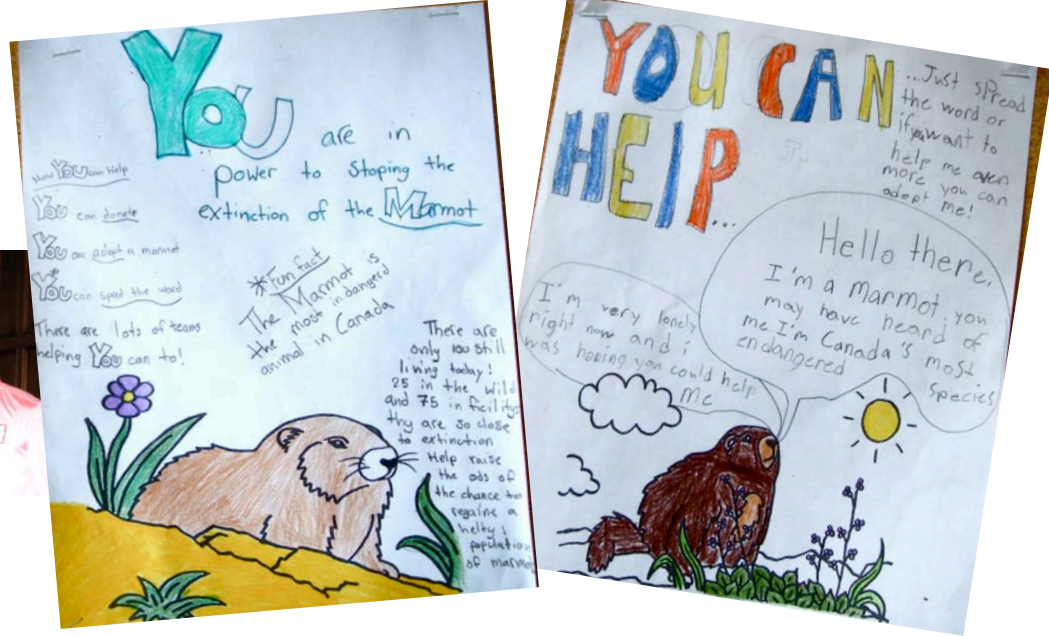 You
are in
power to Stoping the
extinction of the Marmot
How You can Help
You can donate
You can adopt a marmot
You can spred the word
There are lots of teams
helping You can to!
*Fun fact
The Marmot is
the most in dangerd
animal in Canada
There are
only 100 still
living today!
25 in the wild
and 75 in ficilitys
thy are so close
to extinction
Help raise
the ods of
the chance to
regaine a
helty
population
of marmot
YOU CAN
HELP...
...Just spread
the word or
if you want to
help me even
more you can
adopt me!
Hello there,
I'm a Marmot, you
may have heard of
me. I'm Canada's most
endangered species
I'm very lonely
right now and i
was hoping you could help
Me